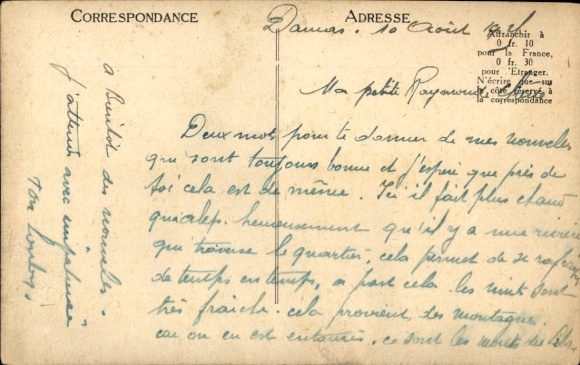 CORRESPONDANCE
ADRESSE
Affranchir à
0 fr. 10
pour la France,
0 fr. 30
pour l'Etranger.
N'écrire que sur
le côté réservé à
la correspondance
Damas. 10 Août
Ma petite Raymonde
Deux mots pour te donner de mes nouvelles
qui sont toujours bonne et j'espère que près de
toi cela est de même. Ici il fait plus chaud
qu'alep. heureusement qu'il y a une rivière
qui traverse le quartier, cela permet de se
de temps en temps, a part cela les nuits sont
très fraiche. cela provient des montagne.
car on en est entourés. ce sont les monts du
a Bientôt des nouvelles.
j'attends avec impatience
Ton